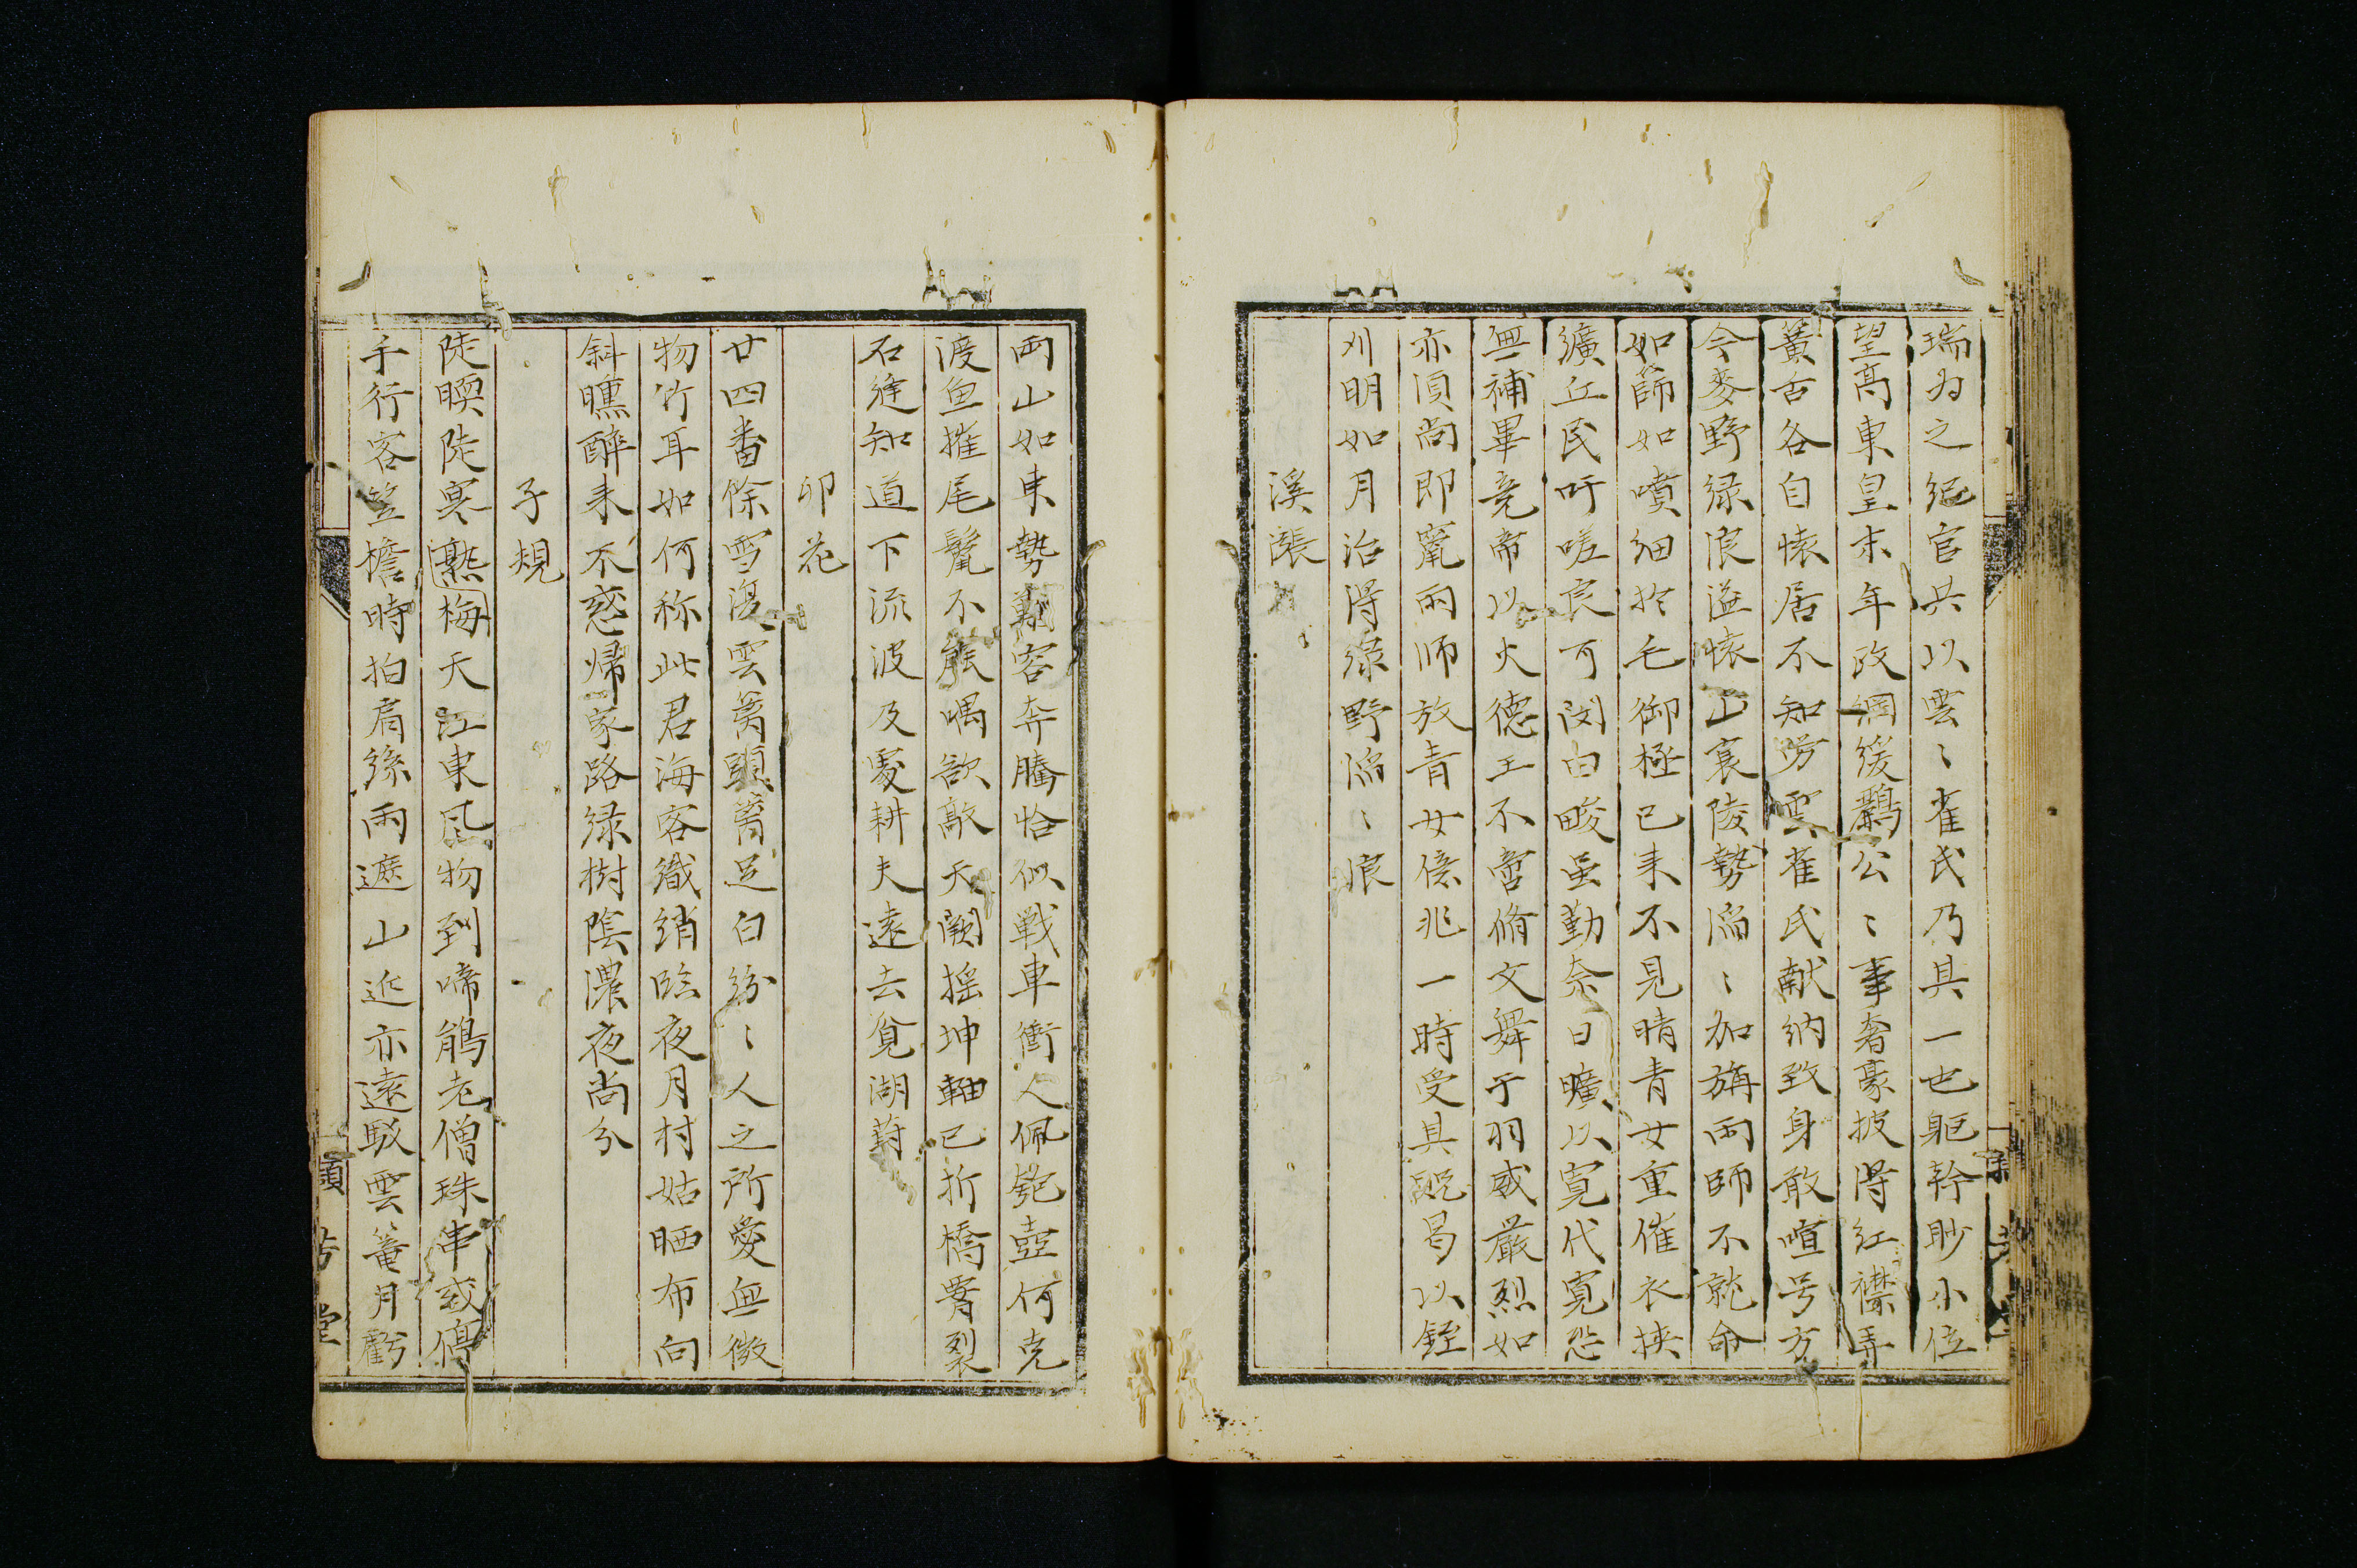 瑞为之紀官共以雲〻雀氏乃其一也軀幹眇小位
望高東皇末年政綱緩鸛公〻事奢豪披得紅襟弄
簧舌各自懐居不知労雲雀氏献納致身敢喧号方
今麥野緑浪溢懐山襄陵勢滔〻加旃雨師不就命
如篩如噴細於毛御極已来不見晴青女重催衣挾
纊丘民吁嗟良可閔田畯虽勤奈日曠以寛代寛恐
無補畢竟帝以火德王不啻脩文舞于羽威嚴烈如
亦須尚即竄雨师放青女億兆一時受其貺曷以銍
刈明如月治得緑野滔〻浪
溪漲
両山如束勢難容奔騰恰似戦車衝人佩匏壺何克
渡魚摧尾鬣不能喁欲敲天闕揺坤軸已折橋臋裂
石縫知道下流波及處耕夫遠去覓湖葑
卯花
廿四番餘雪漫雲籬頭籬足白紛〻人之所愛無微
物竹耳如何称此君海客織綃臨夜月村姑晒布向
斜曛醉来不惑帰家路緑樹陰濃夜尚分
子規
陡暝陡寒熟梅天江東風物到啼鵑老僧珠串或停
手行客笠檐時拍肩絲雨遮山近亦遠駁雲篭月虧